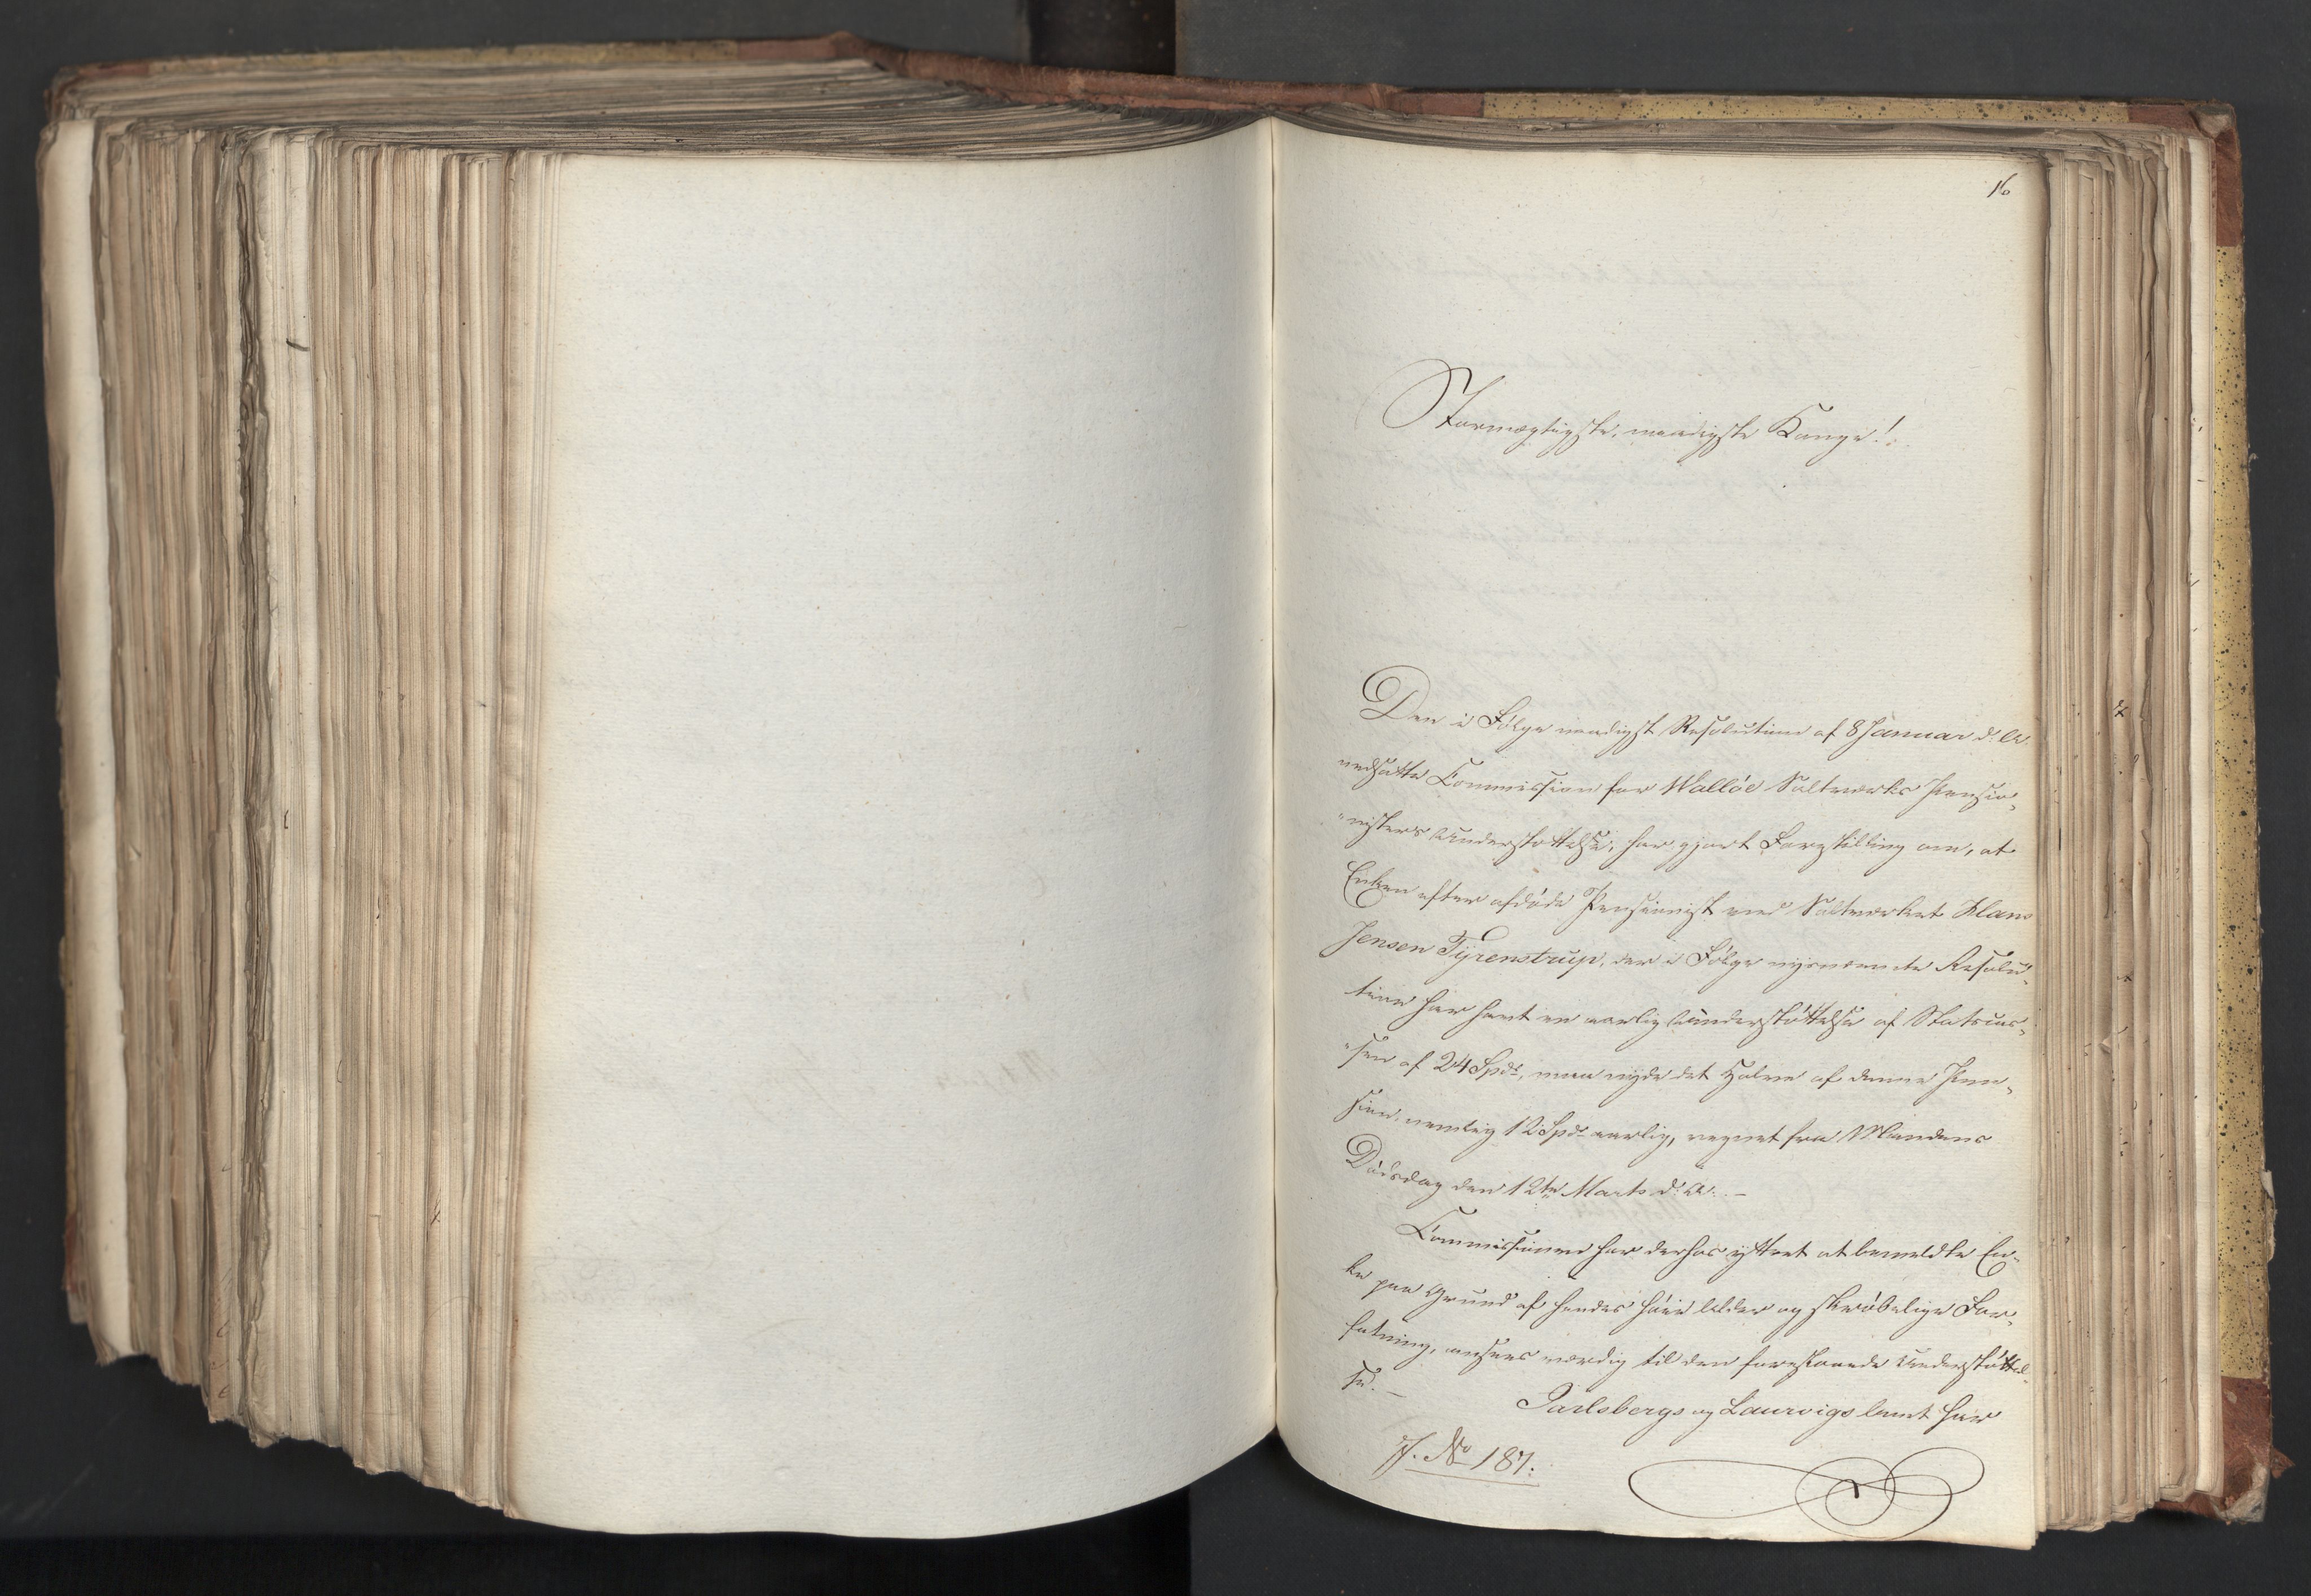 16
Stormægtigste, naadigste Konge!
Den i Følge naadigst Resolution af 8 Januar d: A:
nedsatte Commission for Walløe Saltværks Pensio„
„nisters Understøttelse, har gjort Forestilling om, at
Enken efter afdøde Pensionist ved Saltværket Hans
Jensen Tÿrenstrup, der i Følge nysnævnte Resolu„
tion har havt en aarlig Understøttelse af Statscas„
„sen af 24 Spdr, maa nyde det Halve af denne Pen„
sion, nemlig 12 Spdr aarlig, regnet fra Mandens
Dødsdag den 12te Marts d: A: –
Commissionen har derhos yttret at bemeldte En„
ke paa Grund af hendes høie Alder og skrøbelige For„
fatning, ansees værdig til den foreslaaede Understøttel„
se. –
Jarlsbergs og Laurvigs Amt har
J. No 187.